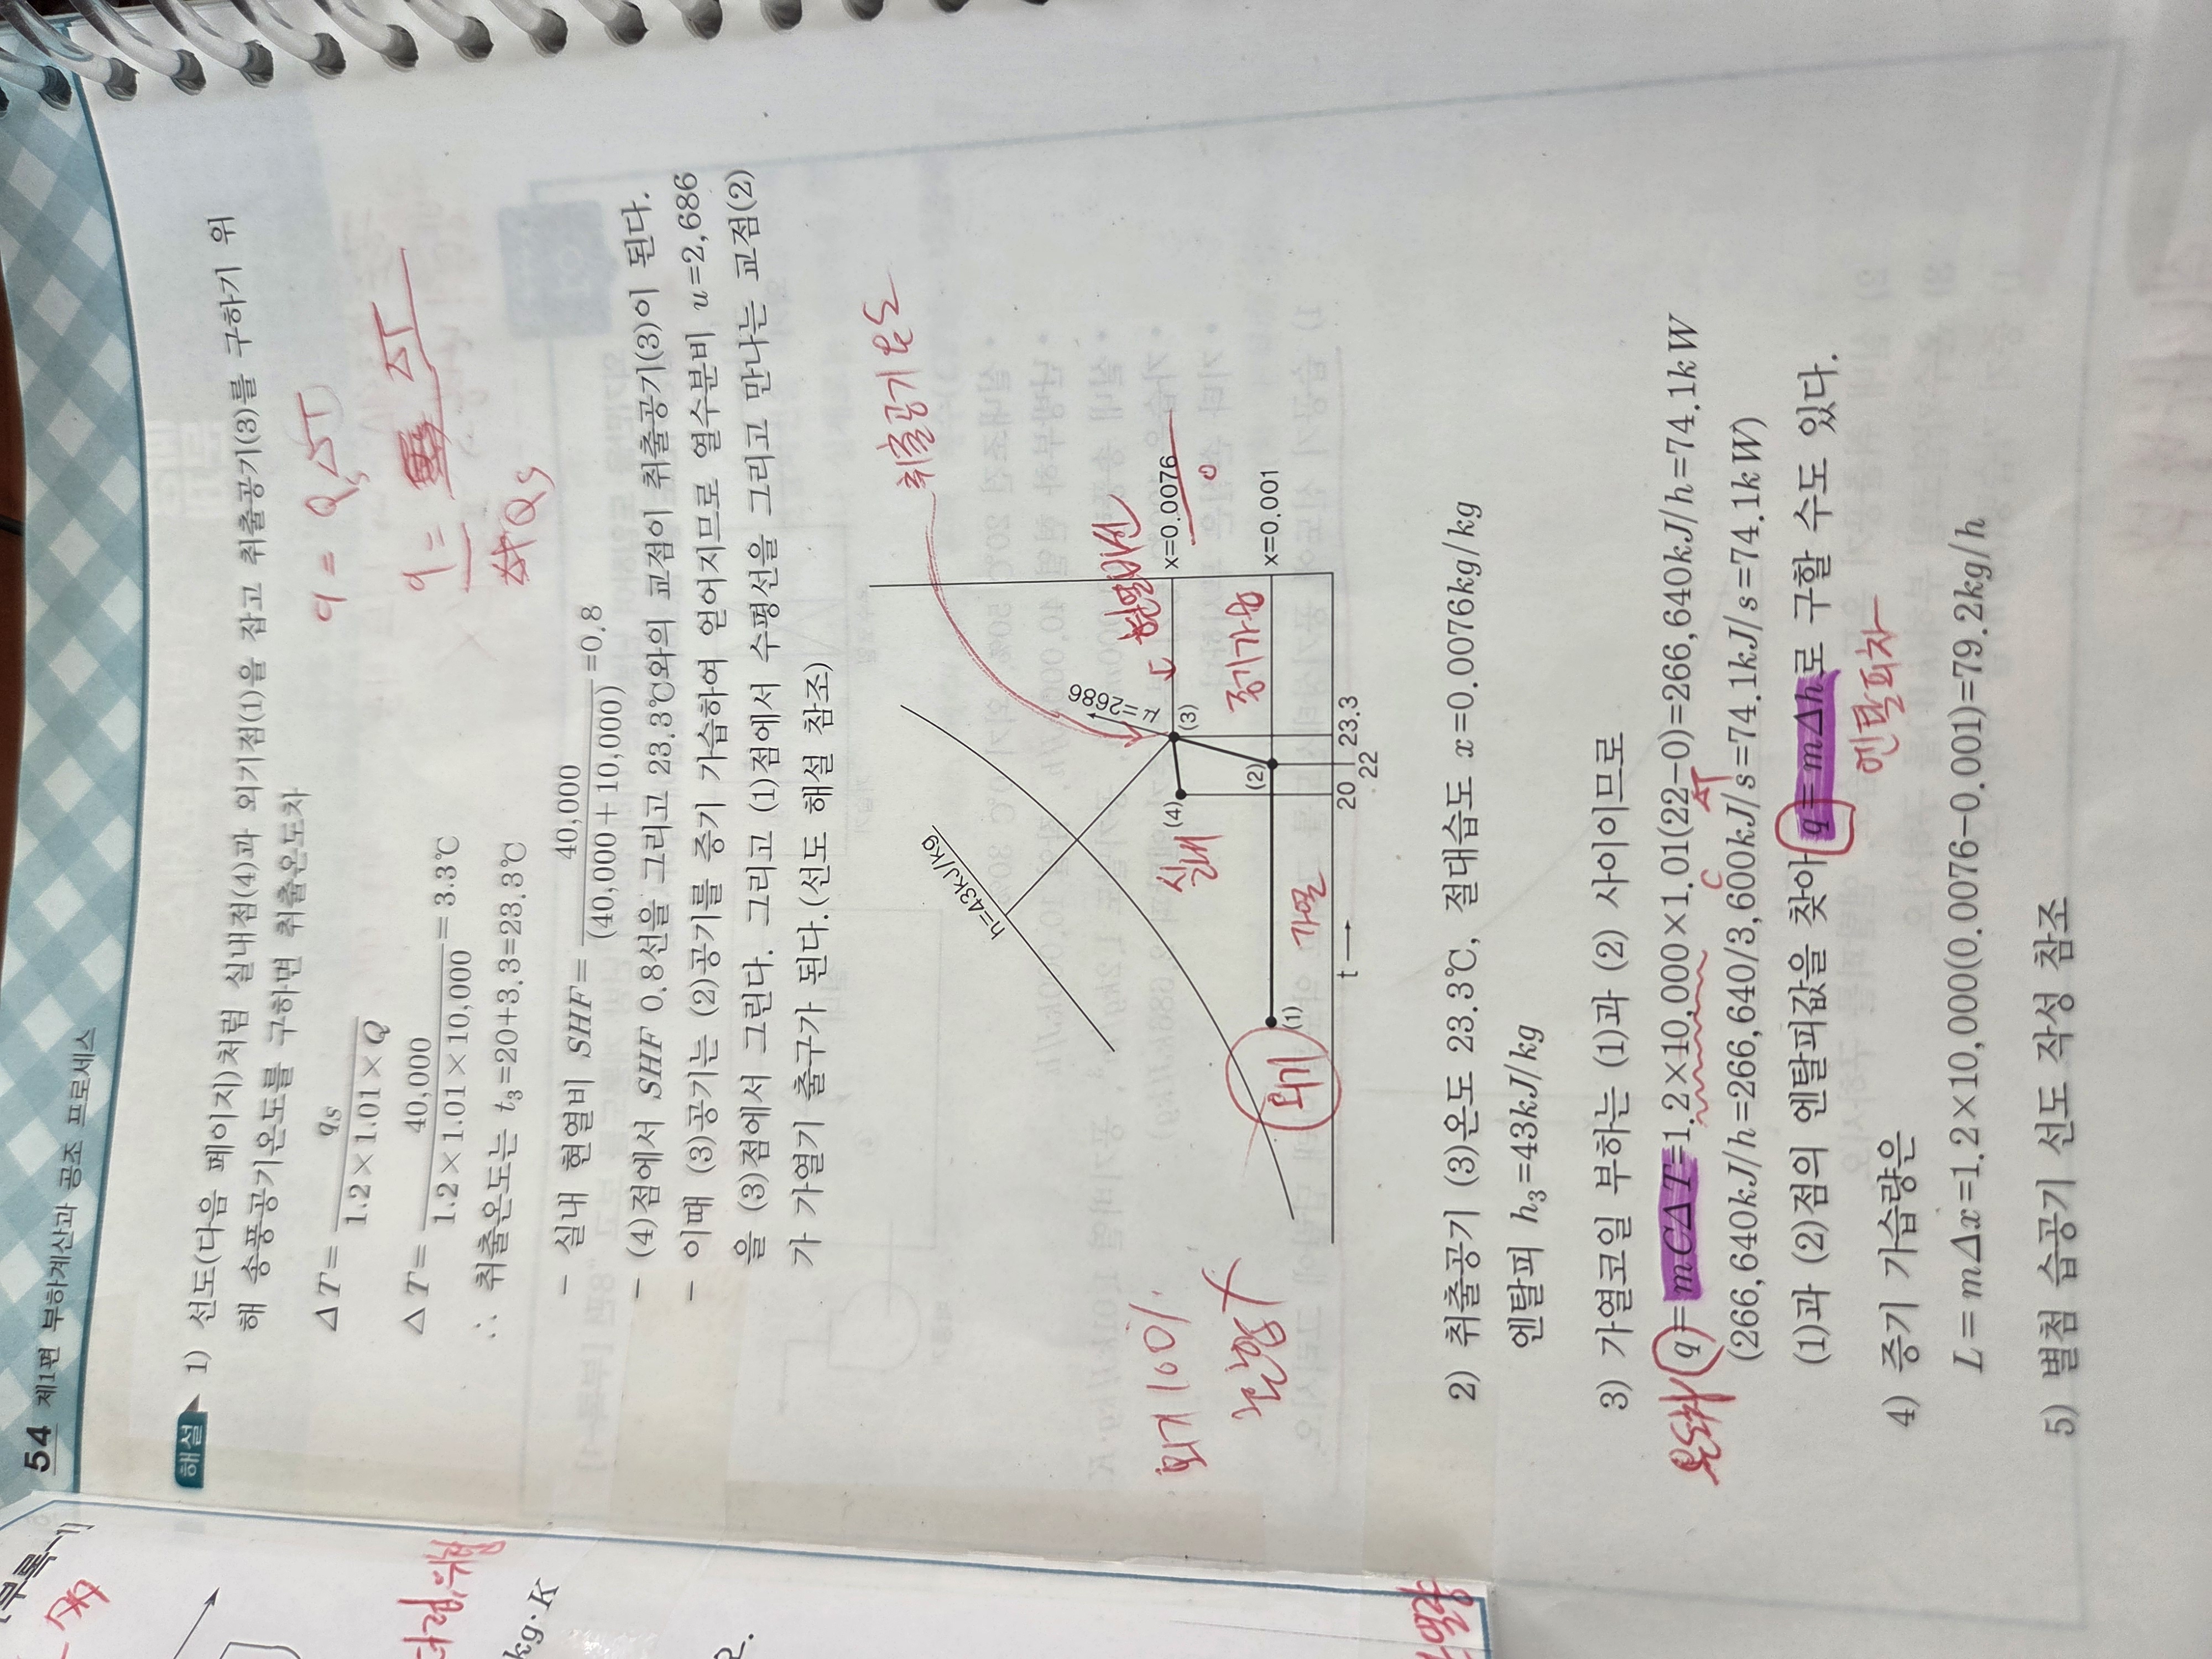 54 제1편 부하계산과 공조 프로세스
해설
1) 선도(다음 페이지)처럼 실내점(4)과 외기점(1)을 잡고 취출공기(3)를 구하기 위
해 송풍공기온도를 구하면 취출온도차
ΔT = qs / (1.2×1.01×Q)
q = Qs ΔT
ΔT = 40,000 / (1.2×1.01×10,000) = 3.3℃
q = ΔT
Qs
∴ 취출온도는 t3=20+3.3=23.3℃
- 실내 현열비 SHF = 40,000 / (40,000+10,000) =0.8
- (4)점에서 SHF 0.8선을 그리고 23.3℃와의 교점이 취출공기(3)이 된다.
- 이때 (3)공기는 (2)공기를 증기 가습하여 얻어지므로 열수분비 u=2,686
을 (3)점에서 그린다. 그리고 (1)점에서 수평선을 그리고 만나는 교점(2)
가 가열기 출구가 된다.(선도 해설 참조)
취출공기 온도
h=43kJ/kg
μ=2686
현열비선
x=0.0076
(3)
(4)
실내
증기가습
x=0.001
(2)
(1)
가열
외기
t
20
22
23.3
외기 100%
난방
2) 취출공기 (3)온도 23.3℃, 절대습도 x=0.0076kg/kg
엔탈피 h3=43kJ/kg
3) 가열코일 부하는 (1)과 (2) 사이이므로
q=mCΔT=1.2×10,000×1.01(22-0)=266,640kJ/h=74.1kW
온도차
C
ΔT
(266,640kJ/h=266,640/3,600kJ/s=74.1kJ/s=74.1kW)
(1)과 (2)점의 엔탈피값을 찾아 q=mΔh로 구할 수도 있다.
엔탈피차
4) 증기 가습량은
L=mΔx=1.2×10,000(0.0076-0.001)=79.2kg/h
5) 별첨 습공기 선도 작성 참조
kg·K
오.